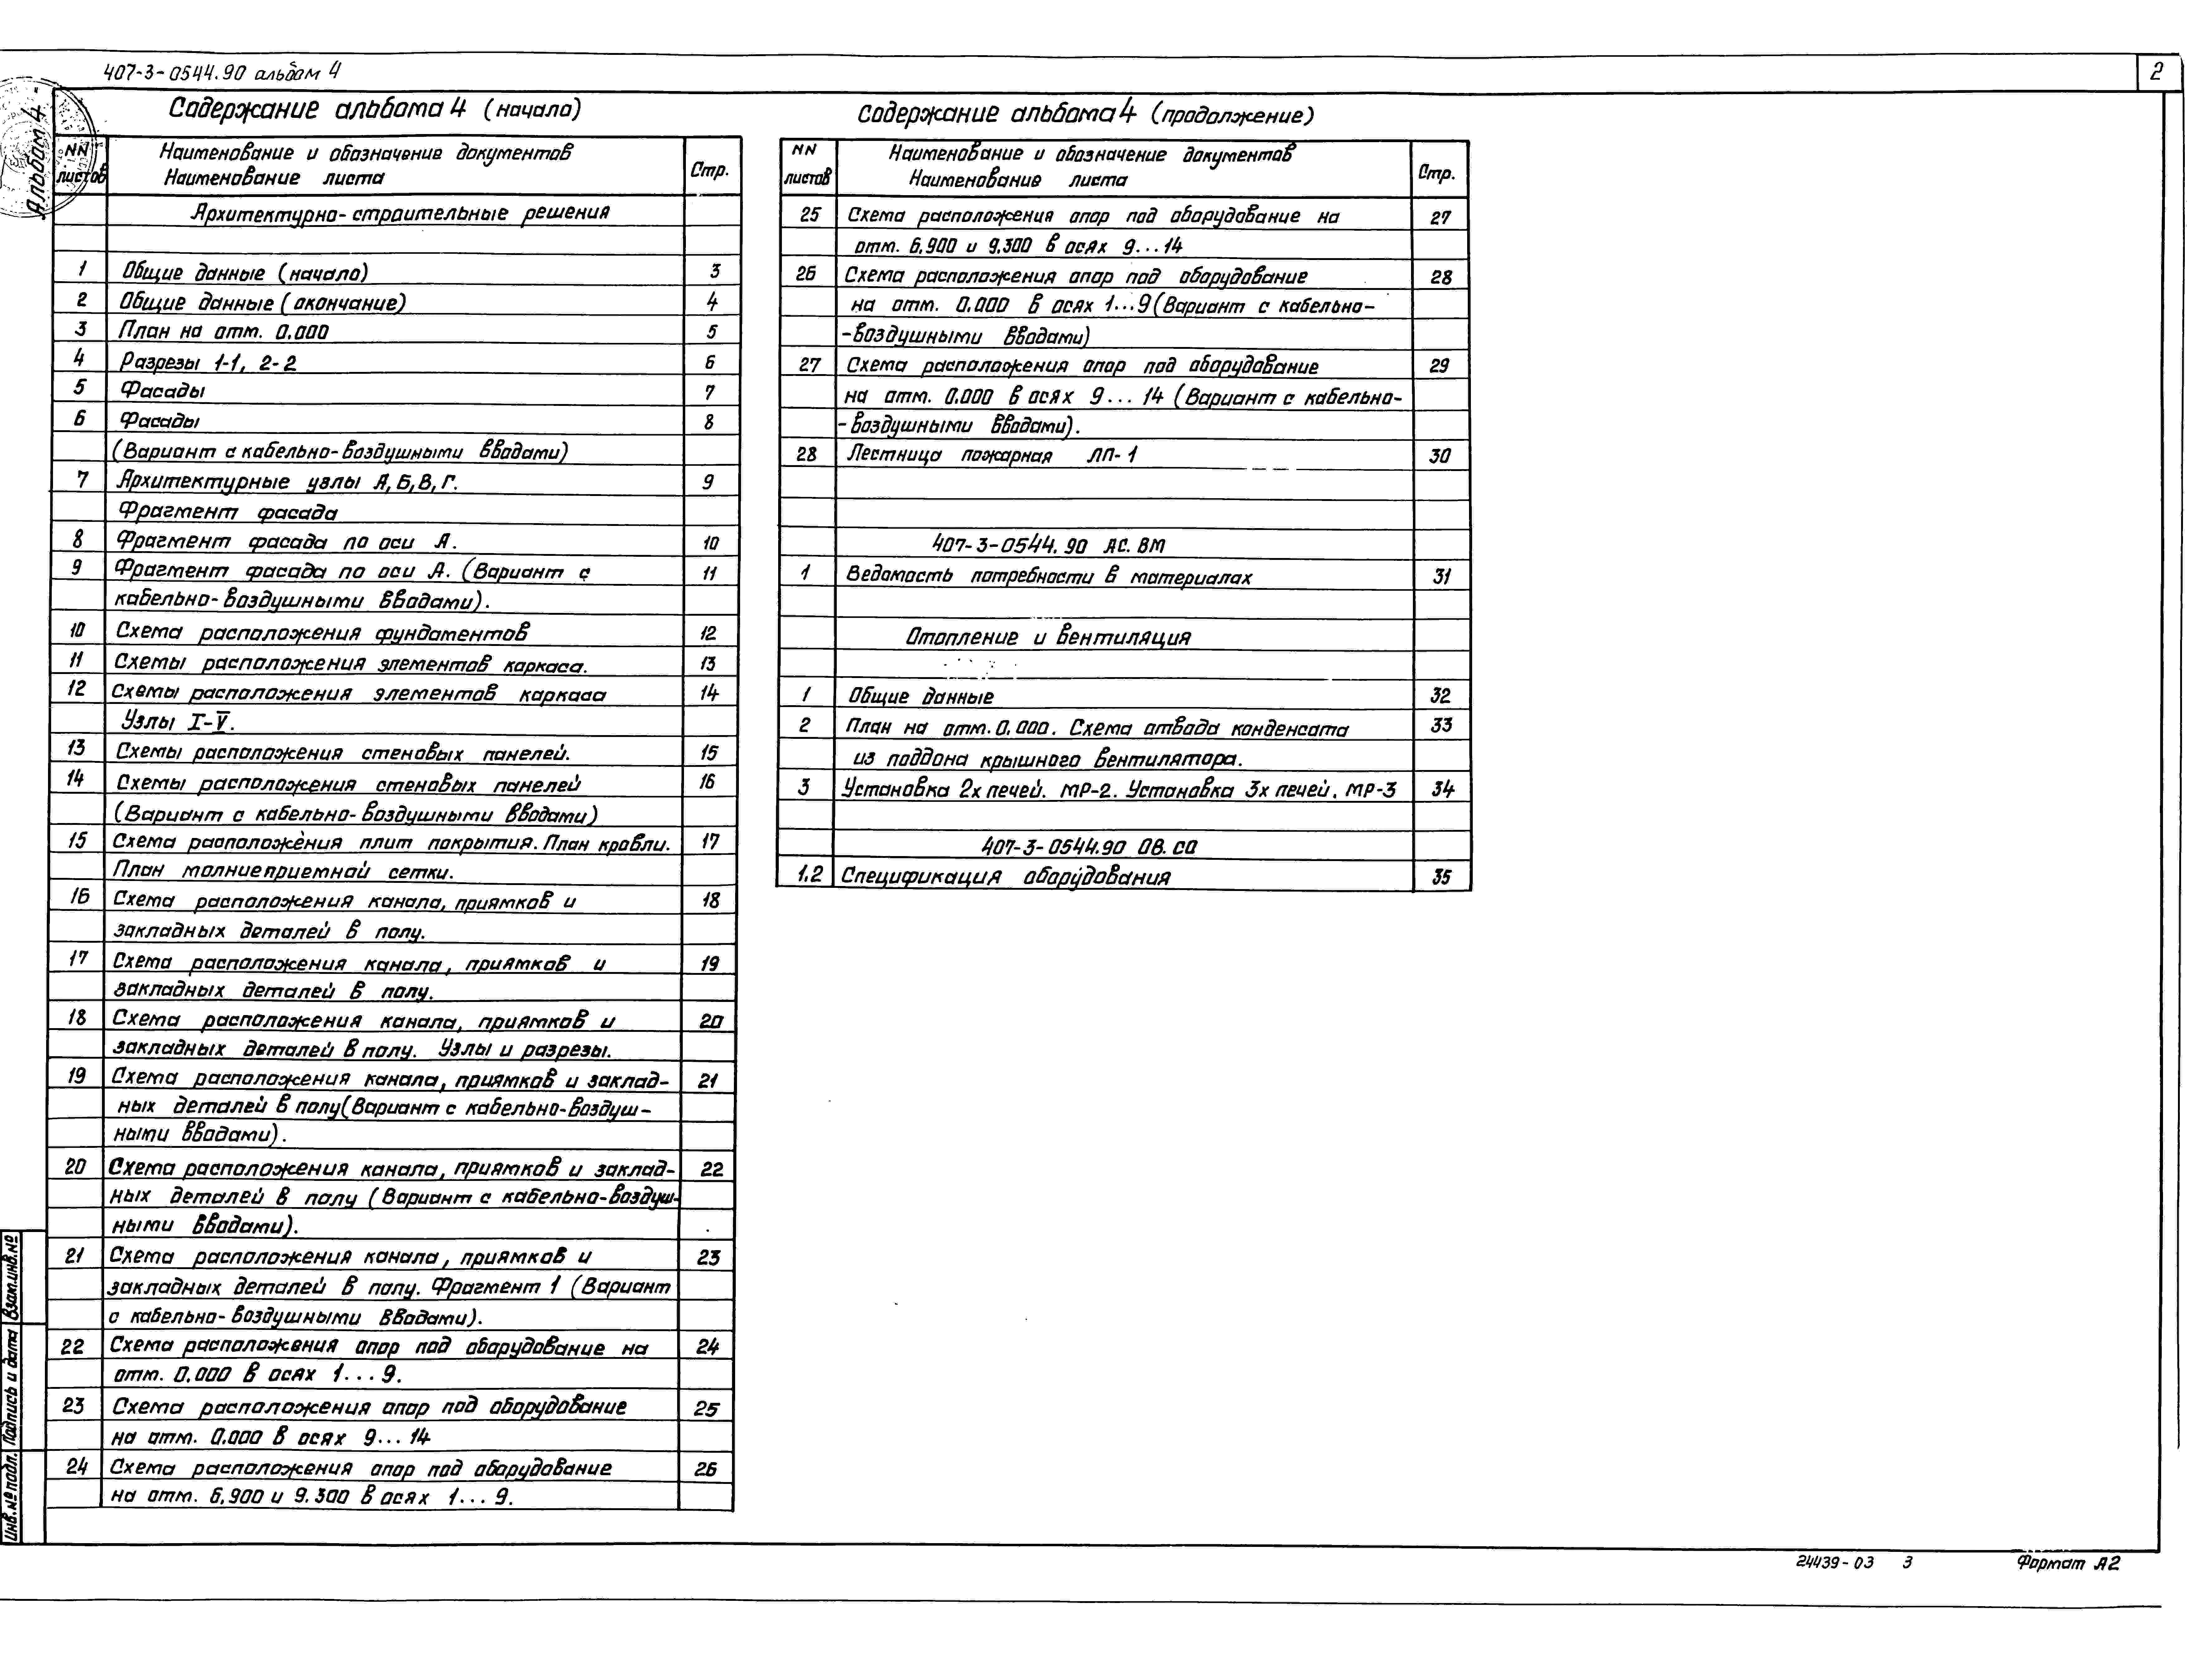 407-3-0544.90 альбом 4
2
Альбом 4
Содержание альбома 4 (начало)
NN листов
Наименование и обозначение документов
Наименование листа
Стр.
Архитектурно-строительные решения
1 Общие данные (начало) 3
2 Общие данные (окончание) 4
3 План на отм. 0.000 5
4 Разрезы 1-1, 2-2 6
5 Фасады 7
6 Фасады 8
(Вариант с кабельно-воздушными вводами)
7 Архитектурные узлы А, Б, В, Г. 9
Фрагмент фасада
8 Фрагмент фасада по оси А. 10
9 Фрагмент фасада по оси А. (Вариант с 11
кабельно-воздушными вводами).
10 Схема расположения фундаментов 12
11 Схемы расположения элементов каркаса. 13
12 Схемы расположения элементов каркаса 14
Узлы I-V.
13 Схемы расположения стеновых панелей. 15
14 Схемы расположения стеновых панелей 16
(Вариант с кабельно-воздушными вводами)
15 Схема расположения плит покрытия. План кровли. 17
План молниеприемной сетки.
16 Схема расположения канала, приямков и 18
закладных деталей в полу.
17 Схема расположения канала, приямков и 19
закладных деталей в полу.
18 Схема расположения канала, приямков и 20
закладных деталей в полу. Узлы и разрезы.
19 Схема расположения канала, приямков и заклад- 21
ных деталей в полу (Вариант с кабельно-воздуш-
ными вводами).
20 Схема расположения канала, приямков и заклад- 22
ных деталей в полу (Вариант с кабельно-воздуш-
ными вводами).
21 Схема расположения канала, приямков и 23
закладных деталей в полу. Фрагмент 1 (Вариант
с кабельно-воздушными вводами).
22 Схема расположения опор под оборудование на 24
отм. 0.000 в осях 1...9.
23 Схема расположения опор под оборудование 25
на отм. 0.000 в осях 9...14
24 Схема расположения опор под оборудование 26
на отм. 6.900 и 9.300 в осях 1...9.
Содержание альбома 4 (продолжение)
NN листов
Наименование и обозначение документов
Наименование листа
Стр.
25 Схема расположения опор под оборудование на 27
отм. 6.900 и 9.300 в осях 9...14
26 Схема расположения опор под оборудование 28
на отм. 0.000 в осях 1...9 (Вариант с кабельно-
-воздушными вводами)
27 Схема расположения опор под оборудование 29
на отм. 0.000 в осях 9...14 (Вариант с кабельно-
-воздушными вводами).
28 Лестница пожарная ЛП-1 30
407-3-0544.90 АС.ВМ
1 Ведомость потребности в материалах 31
Отопление и вентиляция
1 Общие данные 32
2 План на отм. 0.000. Схема отвода конденсата 33
из поддона крышного вентилятора.
3 Установка 2х печей. МР-2. Установка 3х печей. МР-3 34
407-3-0544.90 ОВ.СО
1.2 Спецификация оборудования 35
Инв. № подл. Подпись и дата Взам.инв.№
24439-03 3
Формат А2